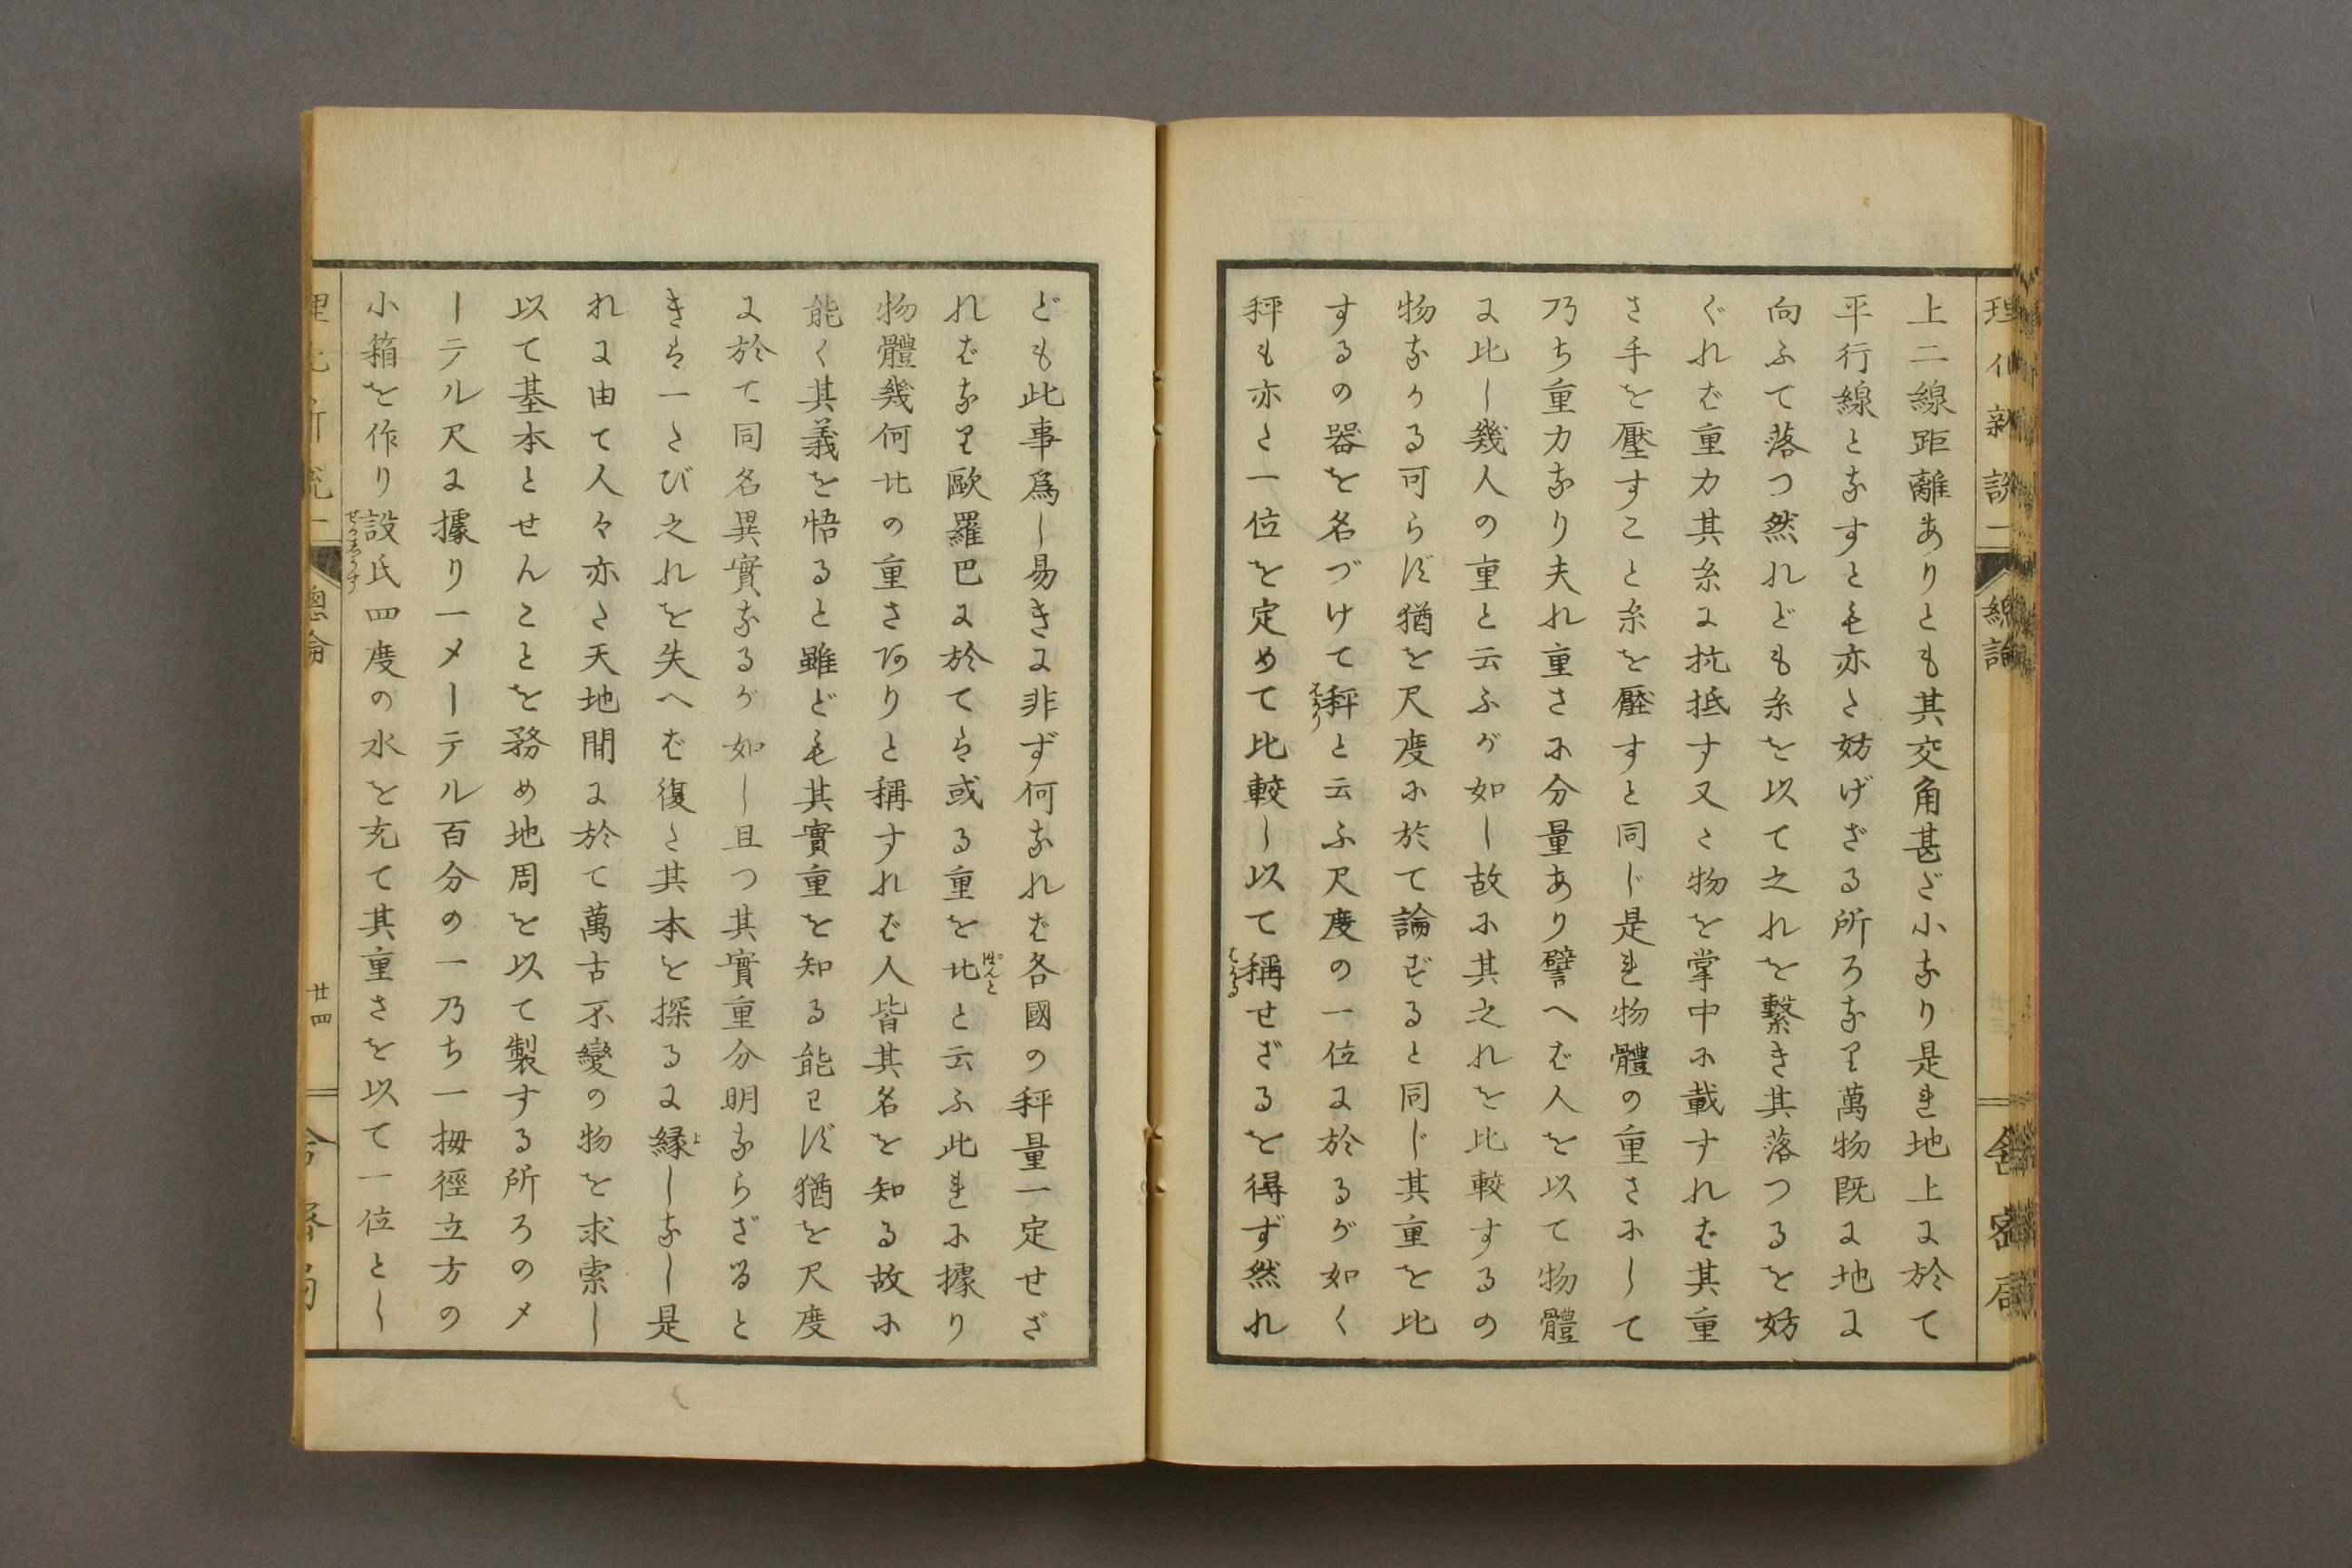 理化新說一 總論 舎密局
上二線距離ありとも其交角甚ざ小なり是れ地上に於て
平行線となすとも亦た妨げざる所ろなり萬物既に地に
向ふて落つ然れども糸を以て之れを繋き其落つるを妨
ぐれば重力其糸に抗抵す又た物を掌中に載すれば其重
さ手を壓すこと糸を壓すと同じ是れ物體の重さにして
乃ち重力なり夫れ重さに分量あり譬へば人を以て物體
に比し幾人の重と云ふが如し故に其之れを比較するの
物なかる可らず猶を尺度に於て論ずると同じ其重を比
するの器を名づけて秤と云ふ尺度の一位に於るが如く
はかり
秤も亦た一位を定めて比較し以て稱せざるを得ず然れ
はかる
ども此事爲し易きに非ず何なれば各國の秤量一定せざ
ればなり歐羅巴に於ては或る重を北と云ふ此れに據り
ぽんど
物體幾何北の重さありと稱すれば人皆其名を知る故に
能く其義を悟ると雖ども其實重を知る能はず猶を尺度
に於て同名異實なるが如し且つ其實重分明ならざると
きは一たび之れを失へば復た其本を探るに縁しなし是
よ
れに由て人々亦た天地間に於て萬古不變の物を求索し
以て基本とせんことを務め地周を以て製する所ろのメ
ーテル尺に據り一メーテル百分の一乃ち一拇徑立方の
小箱を作り設氏四度の水を充て其重さを以て一位とし
總論 廿四